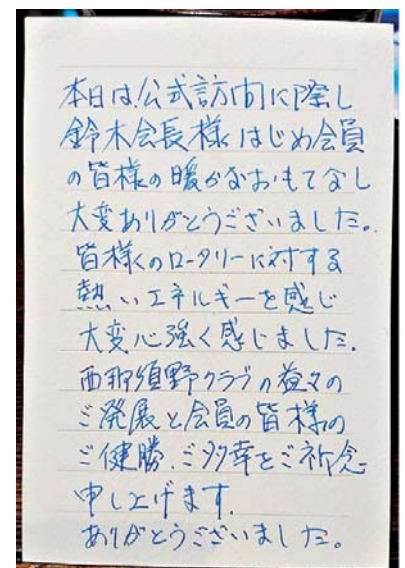 本日は公式訪問に際し
鈴木会長様はじめ会員
の皆様の暖かなおもてなし
大変ありがとうございました。
皆様のロータリーに対する
熱いエネルギーを感じ
大変心強く感じました。
西那須野クラブの益々の
ご発展と会員の皆様の
ご健勝、ご多幸をご祈念
申し上げます。
ありがとうございました。